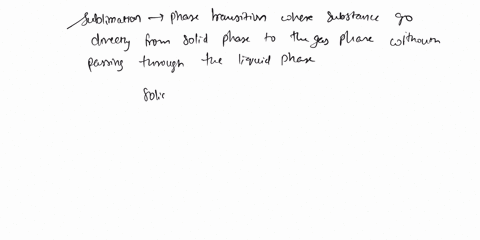 Sublimation → phase transition where substance go
directly from solid phase to the gas phase without
passing through the liquid phase
Soli